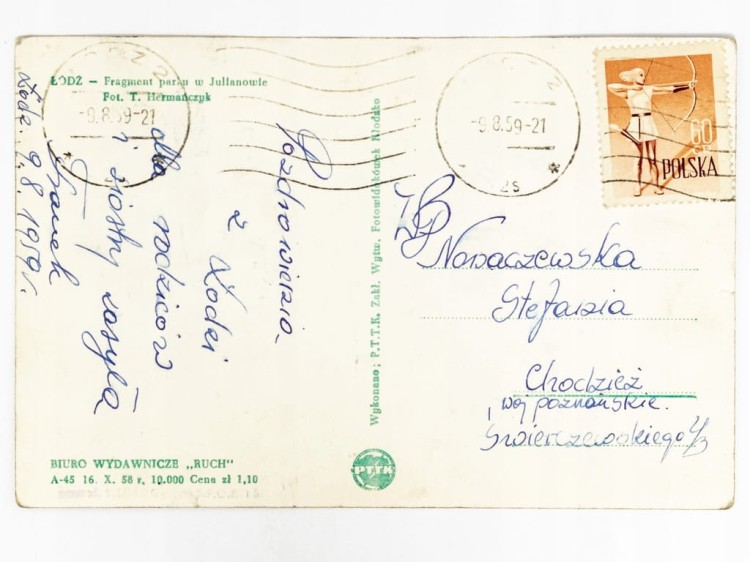 ŁÓDŹ — Fragment parku w Julianowie
Fot. T. Hermańczyk
-9.8.59-21
-9.8.59-21
2s
60
POLSKA
Pozdrowienia
z Łodzi
dla rodziców
i siostry zasyła
Franek
Łódź. 9.8.1959r.
Wykonano; P.T.T.K. Zakł. Wytw. Fotowidokówek Kłodzko
Nowaczewska
Stefania
Chodzież
woj poznańskie.
Świerczewskiego 4/3
BIURO WYDAWNICZE „RUCH"
A-45 16. X. 58 r. 10.000 Cena zł 1,10
PTTK